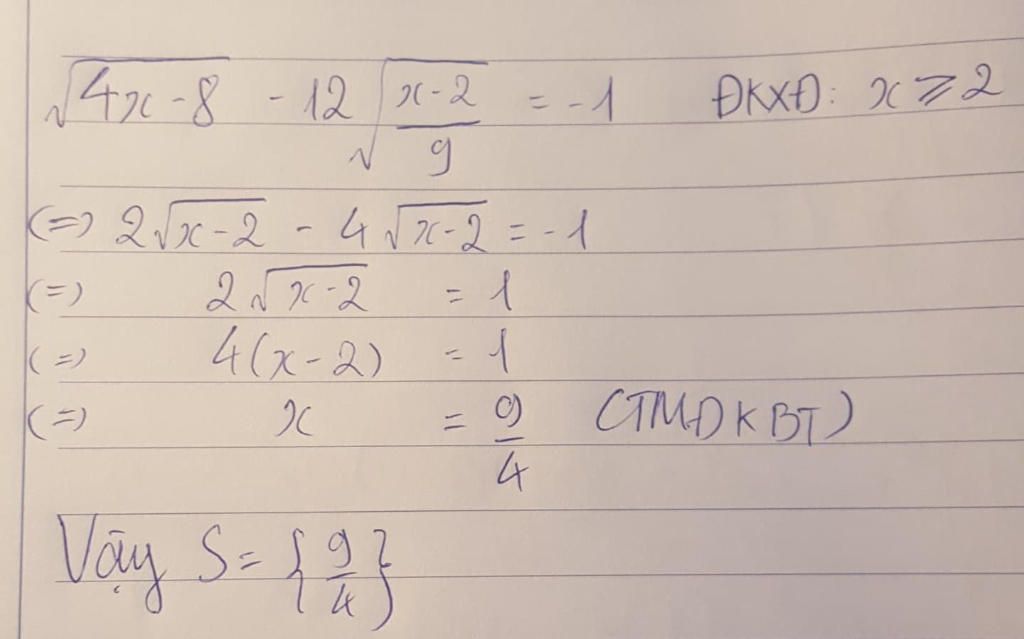 √(4x-8) - 12√((x-2)/9) = -1 ĐKXĐ: x ⩾ 2
(=) 2√(x-2) - 4√(x-2) = -1
(=) 2√(x-2) = 1
(=) 4(x-2) = 1
(=) x = 9/4 (TMĐKBT)
Vậy S = {9/4}